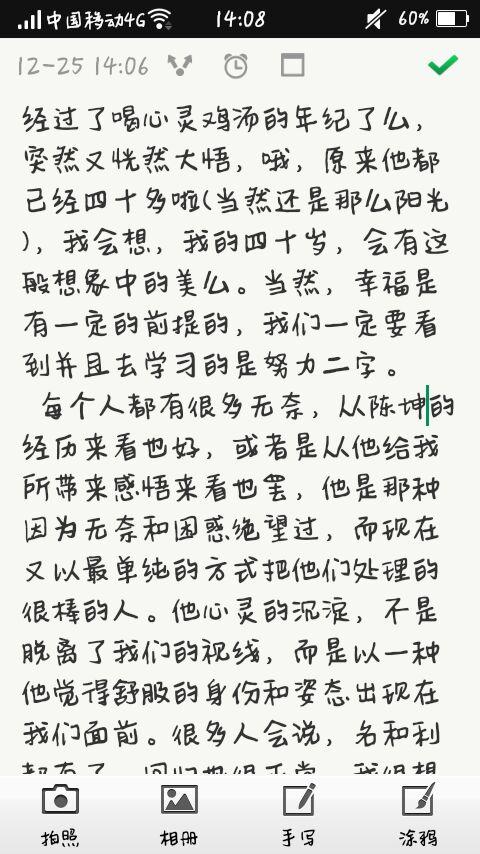 中国移动4G 14:08 60%
12-25 14:06
经过了喝心灵鸡汤的年纪了么，
突然又恍然大悟，哦，原来他都
已经四十多啦(当然还是那么阳光
)，我会想，我的四十岁，会有这
般想象中的美么。当然，幸福是
有一定的前提的，我们一定要看
到并且去学习的是努力二字。
每个人都有很多无奈，从陈坤的
经历来看也好，或者是从他给我
所带来感悟来看也罢，他是那种
因为无奈和困惑绝望过，而现在
又以最单纯的方式把他们处理的
很棒的人。他心灵的沉淀，不是
脱离了我们的视线，而是以一种
他觉得舒服的身份和姿态出现在
我们面前。很多人会说，名和利
都有了，回归也很正常，我很想
拍照 相册 手写 涂鸦